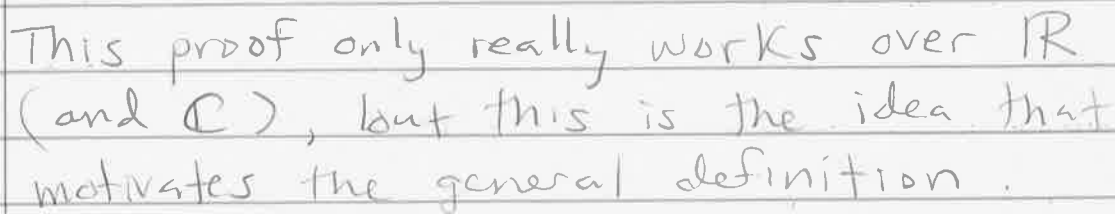 This proof only really works over ℝ
(and ℂ), but this is the idea that
motivates the general definition.